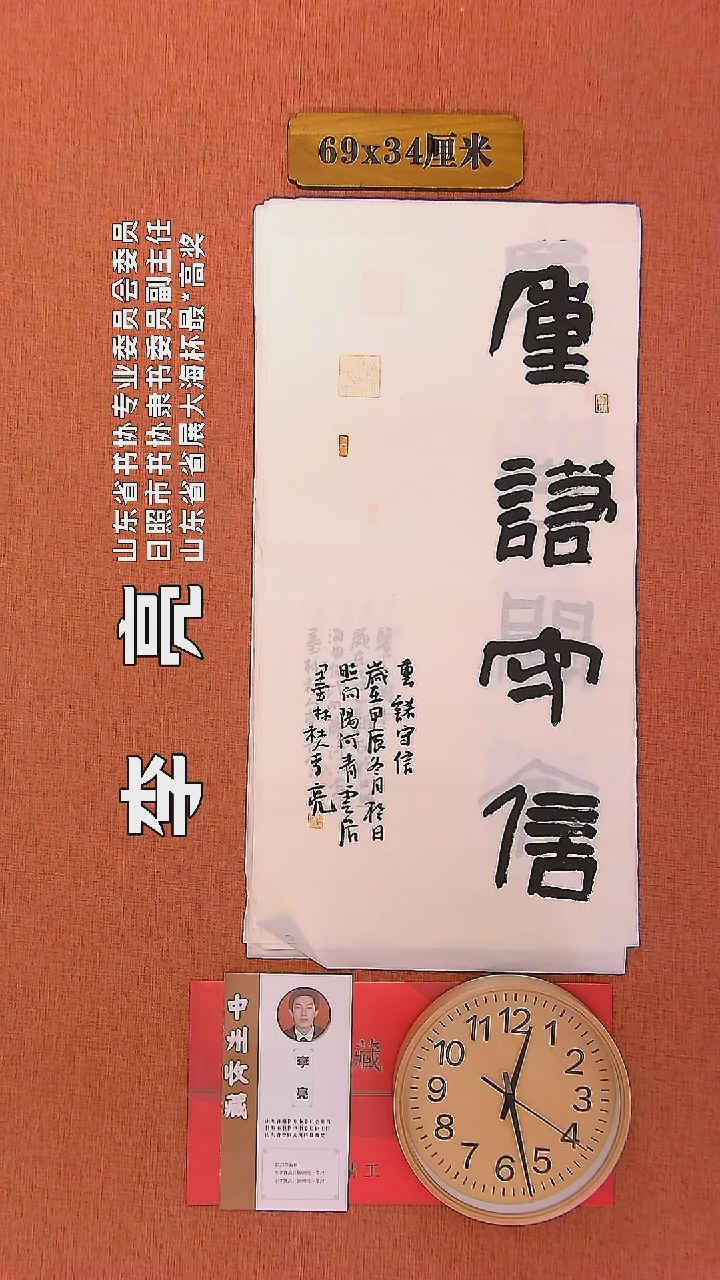 69x34厘米
重諾守信
重諾守信
歲在甲辰冬月於日
照向陽河青雲居
李亮
山东省书协专业委员会委员
日照市书协隶书委员副主任
山东省省展大海杯最*高奖
李 亮
中州收藏
李亮
藏
工
12
1
2
3
4
5
6
7
8
9
10
11